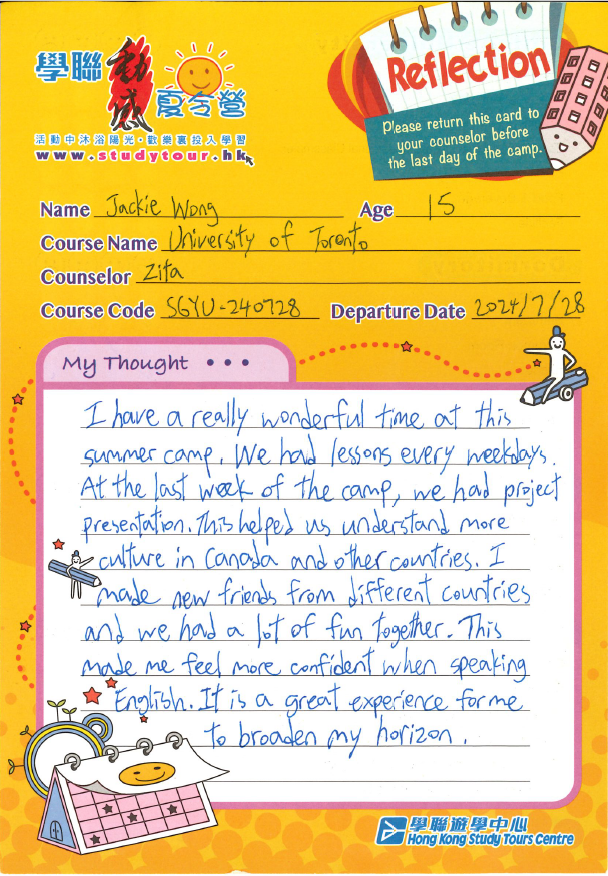 學聯
動感
夏令營
活動中沐浴陽光•歡樂裏投入學習
www.studytour.hk
Reflection
Please return this card to
your counselor before
the last day of the camp.
Name Jackie Wong Age 15
Course Name University of Toronto
Counselor Zita
Course Code SGYU-240728 Departure Date 2024/7/28
My Thought •••
I have a really wonderful time at this
summer camp. We had lessons every weekdays.
At the last week of the camp, we had project
presentation. This helped us understand more
culture in Canada and other countries. I
made new friends from different countries
and we had a lot of fun together. This
made me feel more confident when speaking
English. It is a great experience for me
to broaden my horizon.
學聯遊學中心
Hong Kong Study Tours Centre